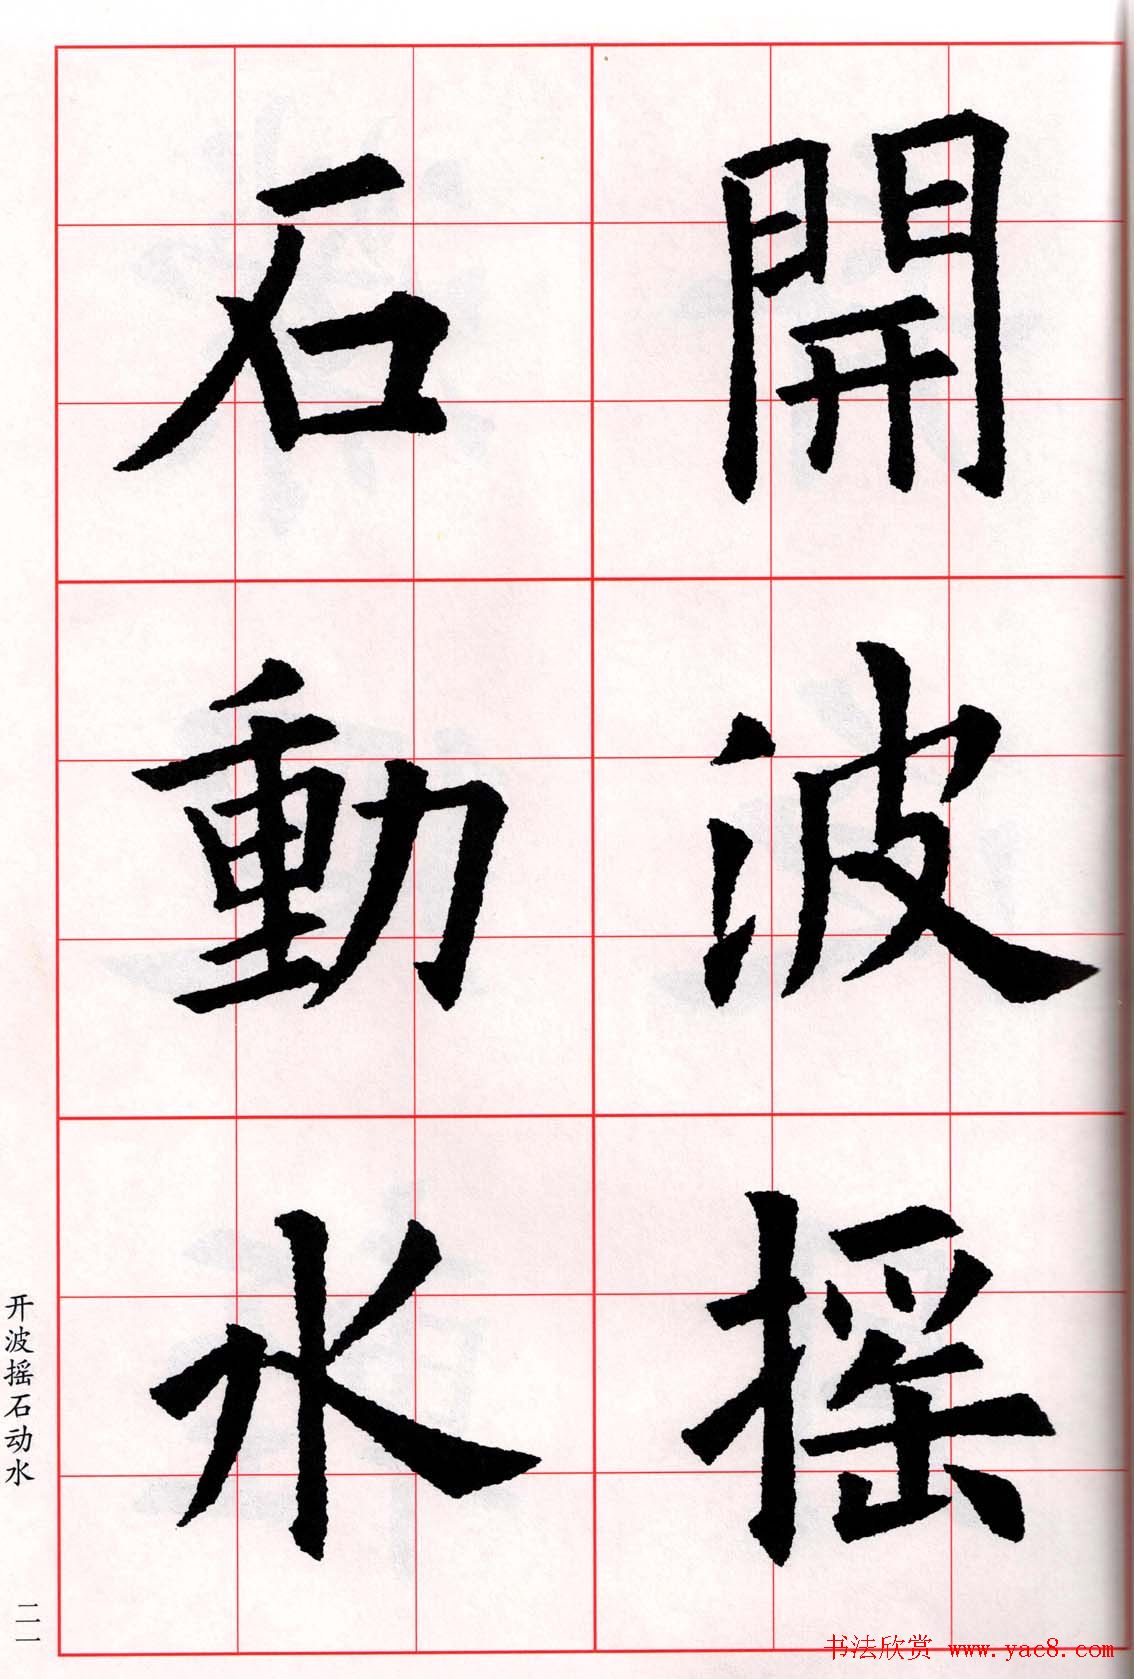 開波摇
石動水
开波摇石动水
二一
书法欣赏 www.yac8.com